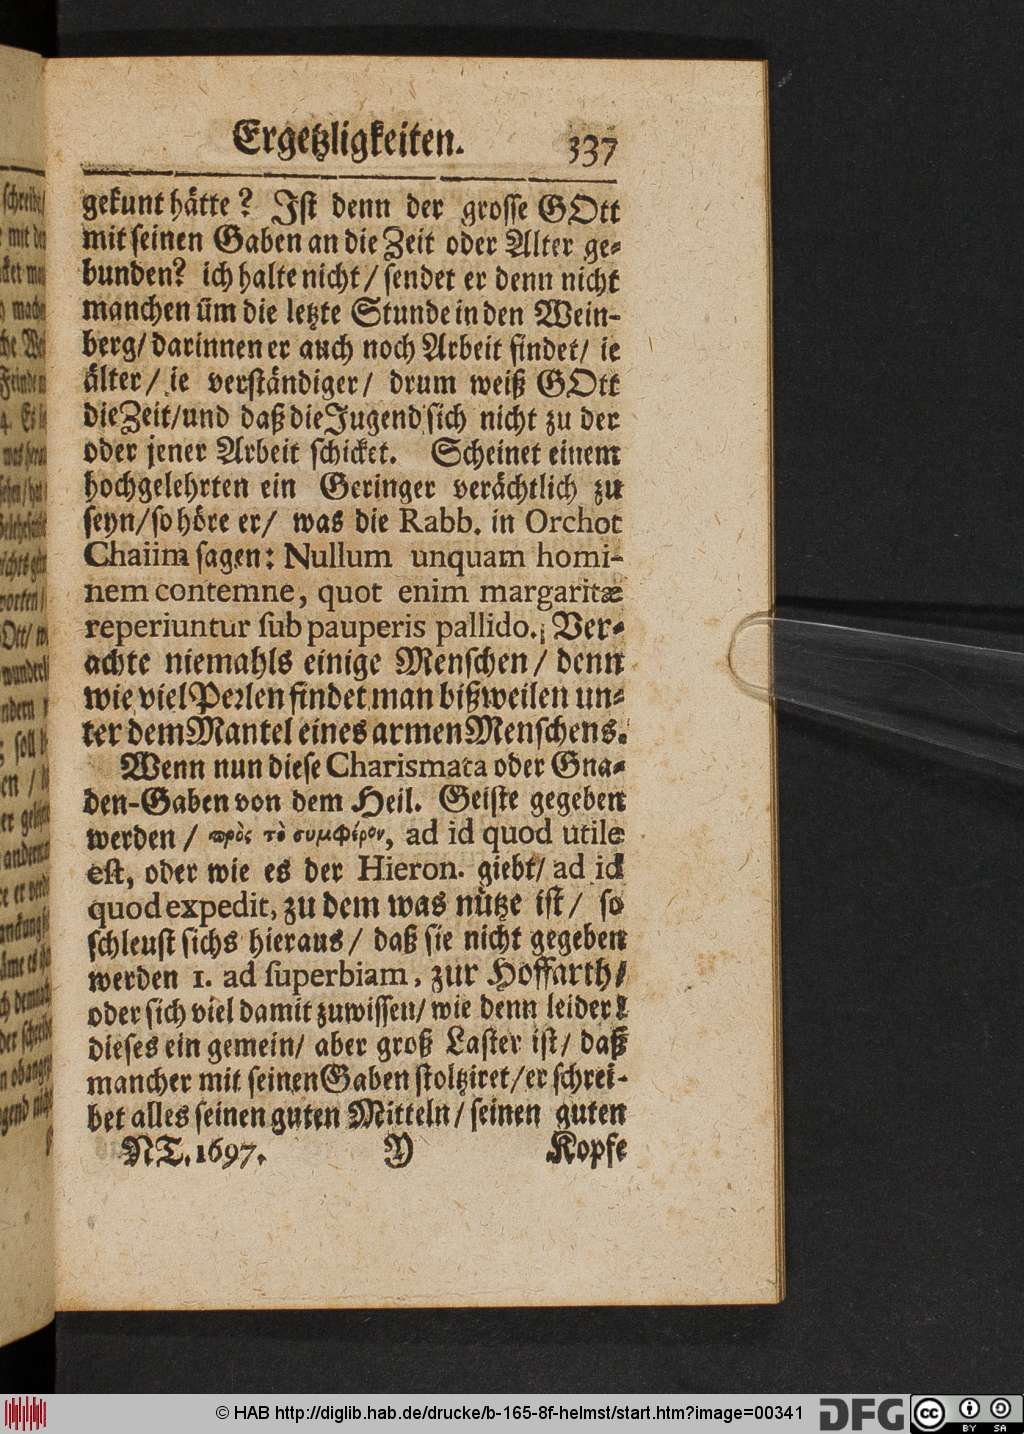 Ergetzligkeiten. 337
gekunt hätte? Ist denn der grosse GOtt
mit seinen Gaben an die Zeit oder Alter ge-
bunden? ich halte nicht / sendet er denn nicht
manchen üm die letzte Stunde in den Wein-
berg / darinnen er auch noch Arbeit findet / ie
älter / ie verständiger / drum weiß GOtt
die Zeit / und daß die Jugend sich nicht zu der
oder jener Arbeit schicket. Scheinet einem
hochgelehrten ein Geringer verächtlich zu
seyn / so höre er / was die Rabb. in Orchot
Chaiim sagen: Nullum unquam homi-
nem contemne, quot enim margaritæ
reperiuntur sub pauperis pallido. Ver-
achte niemahls einige Menschen / denn
wie viel Perlen findet man bißweilen un-
ter dem Mantel eines armen Menschens.
Wenn nun diese Charismata oder Gna-
den-Gaben von dem Heil. Geiste gegeben
werden / πρὸς τὸ συμφέρον, ad id quod utile
est, oder wie es der Hieron. giebt / ad id
quod expedit, zu dem was nütze ist / so
schleust sichs hieraus / daß sie nicht gegeben
werden 1. ad superbiam, zur Hoffarth /
oder sich viel damit zuwissen / wie denn leider!
dieses ein gemein / aber groß Laster ist / daß
mancher mit seinen Gaben stoltziret / er schrei-
bet alles seinen guten Mitteln / seinen guten
NT. 1697. Y Kopfe
© HAB http://diglib.hab.de/drucke/b-165-8f-helmst/start.htm?image=00341
DFG
cc BY SA